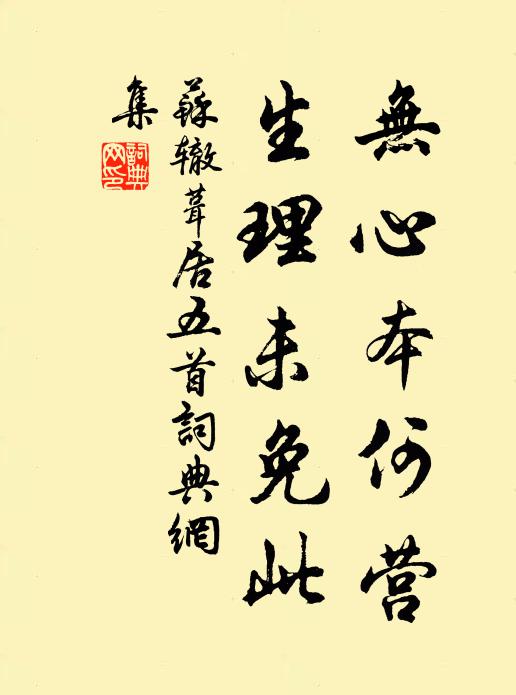 無心本何营
生理未免此
蘇辙葺居五首詞典網
集
詞典網印